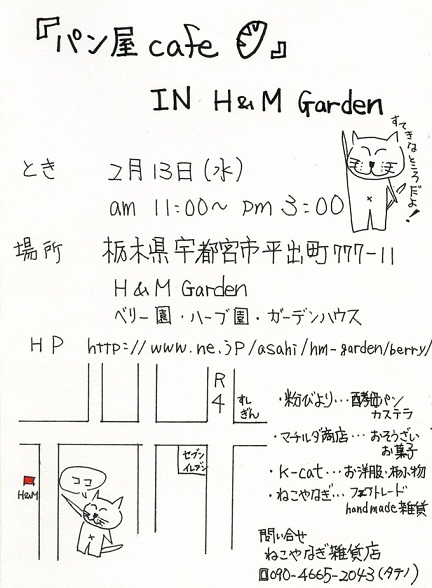 『パン屋 cafe 』
IN H&M Garden
すてきなところだよ!
とき 2月13日(水)
am 11:00~ pm 3:00
場所 栃木県宇都宮市平出町777-11
H&M Garden
ベリー園・ハーブ園・ガーデンハウス
HP http://www.ne.jp/asahi/hm-garden/berry/
R4
セブン
イレブン
H&M
ココ
・粉びより…酵母パン
カステラ
・マチルダ商店…おそうざい
お菓子
・K-cat…お洋服・布小物
・ねこやなぎ…フェアトレード
handmade雑貨
問い合せ
ねこやなぎ雑貨店
090-4665-2043(タテノ)